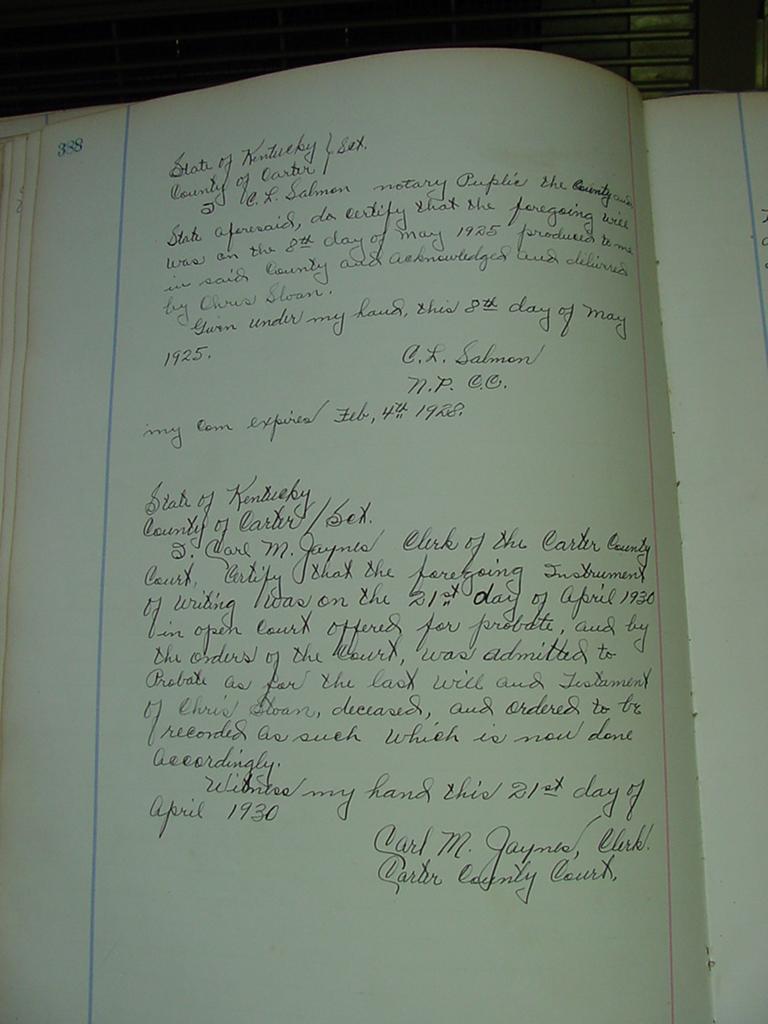 388
State of Kentucky } Sct.
County of Carter
I C. L. Salmon notary Puplic the County and
State aforesaid, do certify that the foregoing will
was on the 8th day of may 1925 produced to me
in said County and acknowledged and delivired
by Chris Sloan.
Givin under my hand, this 8th day of May
1925.
C. L. Salmon
N.P. C.C.
my Com expires Feb, 4th 1928.
State of Kentucky
County of Carter / Sct.
I. Carl M. Jaynes Clerk of the Carter County
Court, Certify that the foregoing Instrument
of writing was on the 21st day of April 1930
in open Court offered for probate, and by
the orders of the Court, was admitted to
Probate as for the last Will and Testament
of Chris Sloan, deceased, and ordered to be
recorded as such which is now done
accordingly.
Witness my hand this 21st day of
April 1930
Carl M. Jaynes, Clerk.
Carter County Court.